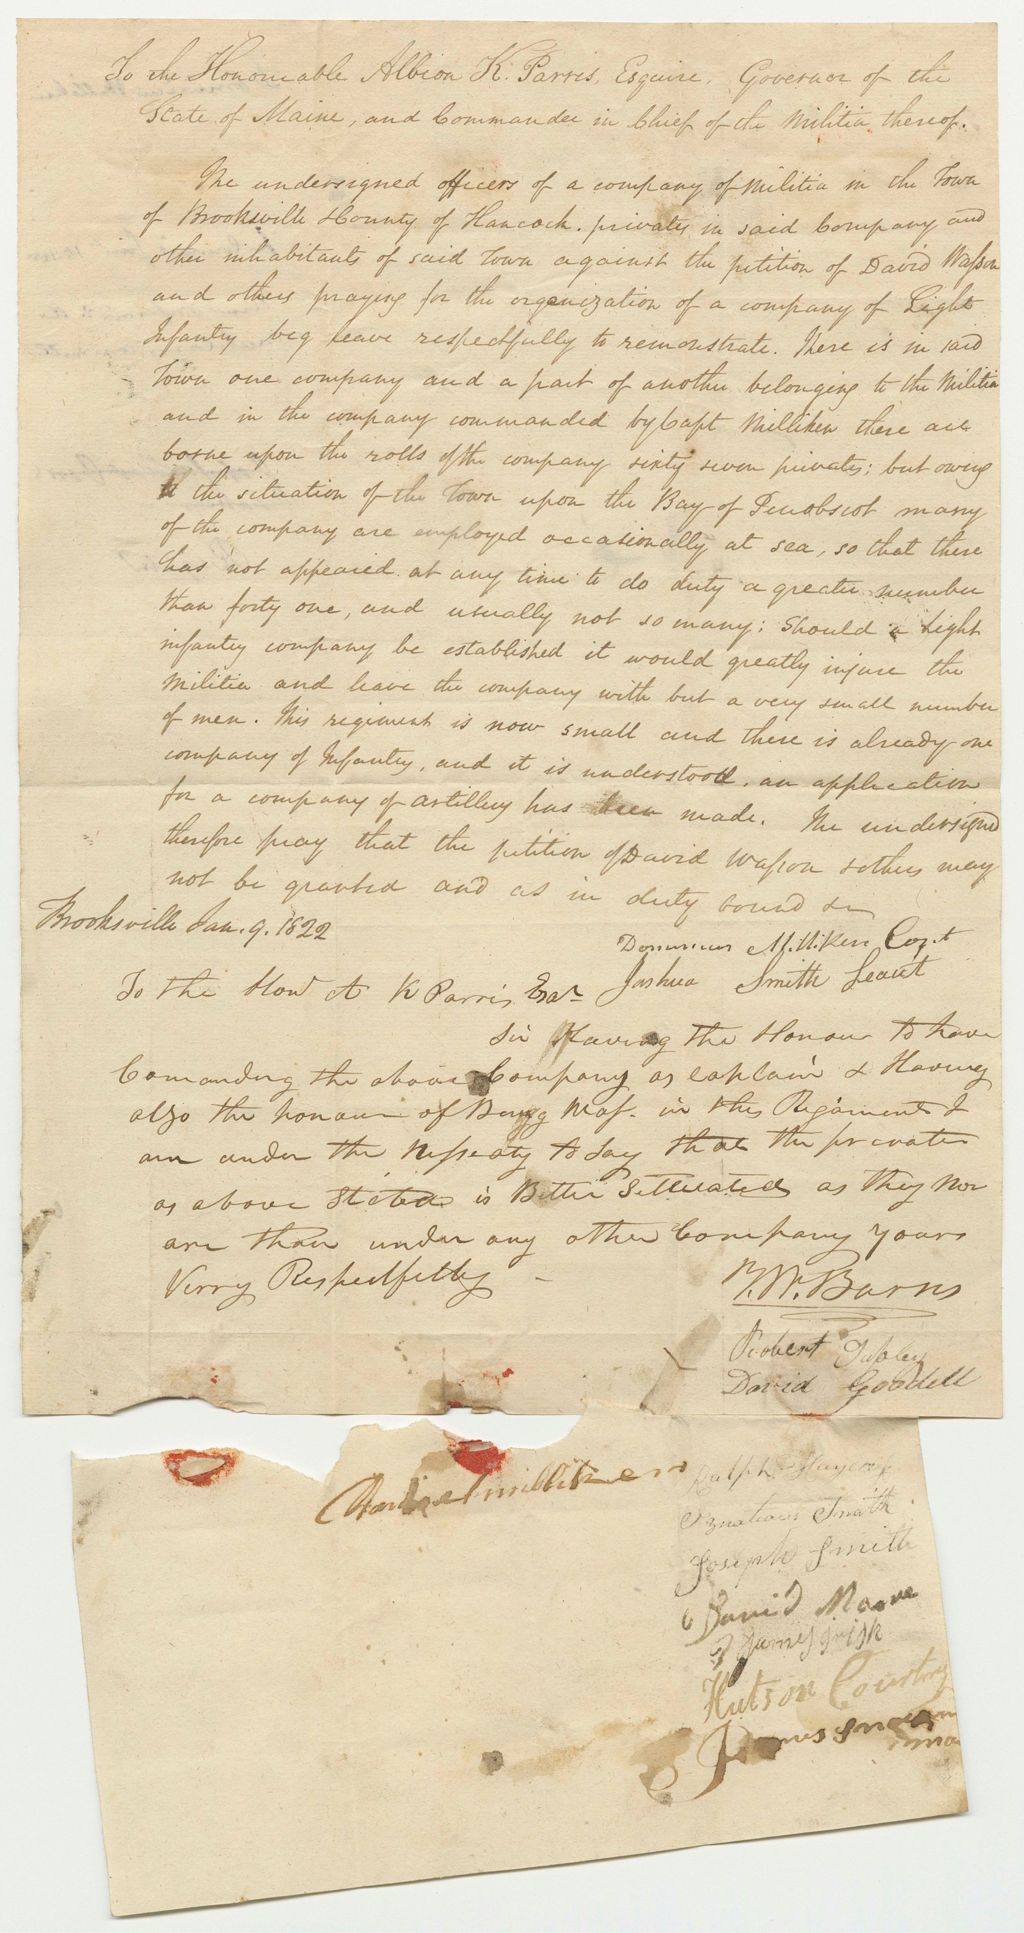 To the Honourable Albion K. Parris, Esquire, Governor of the
State of Maine, and Commander in Chief of the Militia thereof.
The undersigned officers of a company of Militia in the Town
of Brooksville & County of Hancock. privates in said Company and
other inhabitants of said Town against the petition of David Wasson
and others praying for the organization of a company of Light
Infantry beg leave respectfully to remonstrate. There is in said
Town one company and a part of another belonging to the Militia
and in the company commanded by Capt Milliken there are
borne upon the rolls of the company sixty seven privates: but owing
to the situation of the Town upon the Bay of Penobscot many
of the company are employed occasionally at sea, so that there
has not appeared at any time to do duty a greater number
than forty one, and usually not so many; should a Light
infantry company be established it would greatly injure the
Militia and leave the company with but a very small number
of men. This regiment is now small and there is already one
company of Infantry, and it is understood, an application
for a company of artillery has been made. The undersigned
therefore pray that the petition of David Wasson & others may
not be granted and as in duty bound &c
Brooksville Jan. 9. 1822
Dominicus Milliken Capt
Joshua Smith Leaut
To the Hond A K Parris Esqr
Sir Having the Honour to have
Comanding the above Company as explain & Having
also the honour of Maj. in this Regiment I
am under the Nessesty to Say that the privates
as above Stated is Better Sittuated as they Now
are than under any other Company Yours
Verry Respectfully -
B. W. Barns
Robert Tapley
David Goodell
Daniel milliken
Ralph Haycock
Ignatious Smith
Joseph Smith
David Moore
James Irish
Hutson Courtny
James